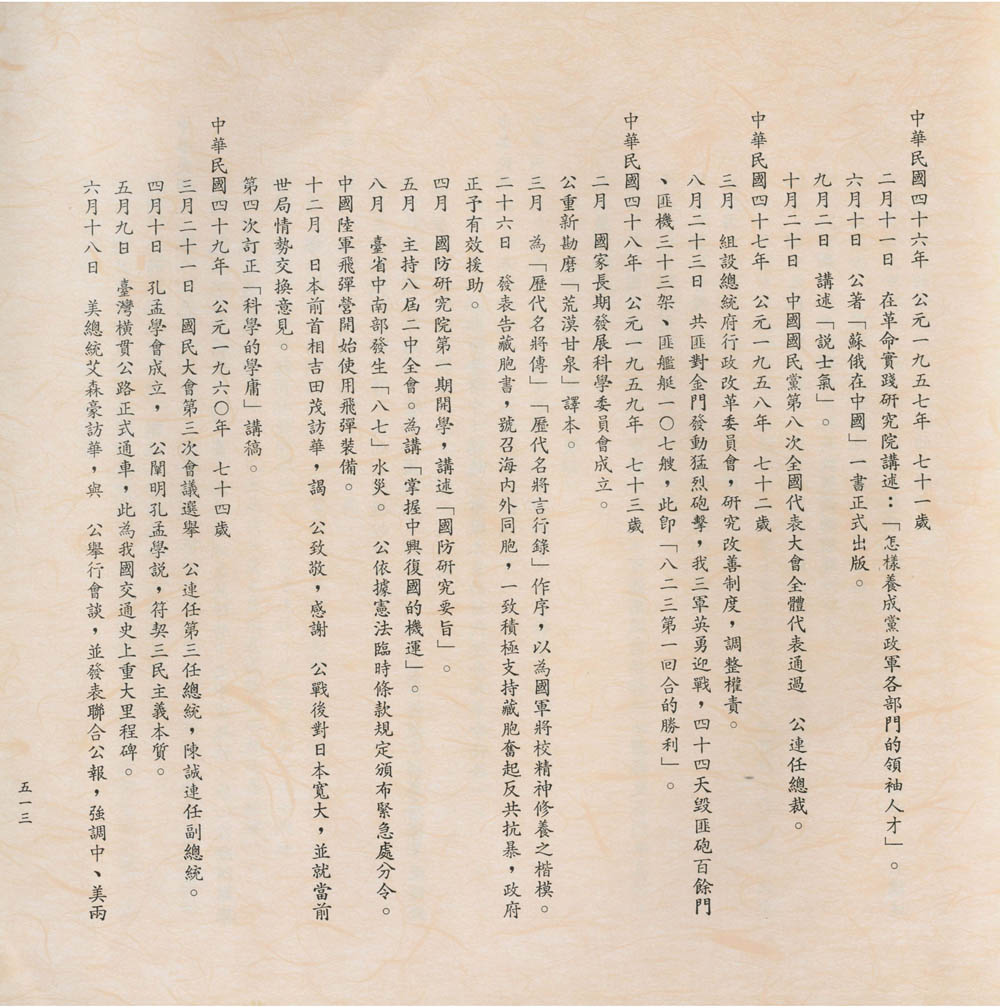 中華民國四十六年　公元一九五七年　七十一歲
二月十一日　在革命實踐研究院講述：「怎樣養成黨政軍各部門的領袖人才」。
六月十日　公著「蘇俄在中國」一書正式出版。
九月二日　講述「說士氣」。
十月二十日　中國國民黨第八次全國代表大會全體代表通過　公連任總裁。
中華民國四十七年　公元一九五八年　七十二歲
三月　組設總統府行政改革委員會，研究改善制度，調整權責。
八月二十三日　共匪對金門發動猛烈砲擊，我三軍英勇迎戰，四十四天毀匪砲百餘門
、匪機三十三架、匪艦艇一〇七艘，此卽「八二三第一回合的勝利」。
中華民國四十八年　公元一九五九年　七十三歲
二月　國家長期發展科學委員會成立。
公重新勘磨「荒漠甘泉」譯本。
三月　為「歷代名將傳」「歷代名將言行錄」作序，以為國軍將校精神修養之楷模。
二十六日　發表告藏胞書，號召海內外同胞，一致積極支持藏胞奮起反共抗暴，政府
正予有效援助。
四月　國防研究院第一期開學，講述「國防研究要旨」。
五月　主持八屆二中全會。為講「掌握中興復國的機運」。
八月　臺省中南部發生「八七」水災。　公依據憲法臨時條款規定頒布緊急處分令。
中國陸軍飛彈營開始使用飛彈裝備。
十二月　日本前首相吉田茂訪華，謁　公致敬，感謝　公戰後對日本寬大，並就當前
世局情勢交換意見。
第四次訂正「科學的學庸」講稿。
中華民國四十九年　公元一九六〇年　七十四歲
三月二十一日　國民大會第三次會議選舉　公連任第三任總統，陳誠連任副總統。
四月十日　孔孟學會成立，　公闡明孔孟學說，符契三民主義本質。
五月九日　臺灣橫貫公路正式通車，此為我國交通史上重大里程碑。
六月十八日　美總統艾森豪訪華，與　公舉行會談，並發表聯合公報，強調中、美兩
五一三